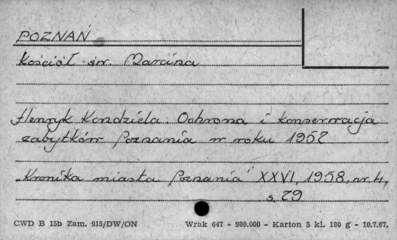 POZNAŃ
Kościół św. Marcina
Henryk Kondziela: Ochrona i konserwacja
zabytków Poznania w roku 1957
„Kronika miasta Poznania" XXVI, 1958, nr. 4,
s. 79
CWD B 15b Zam. 915/DW/ON Wrak 647 - 980.000 - Karton 3 kl. 180 g - 10.7.57.